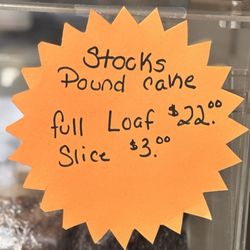 Stocks
Pound cake
full Loaf $22.00
Slice $3.00